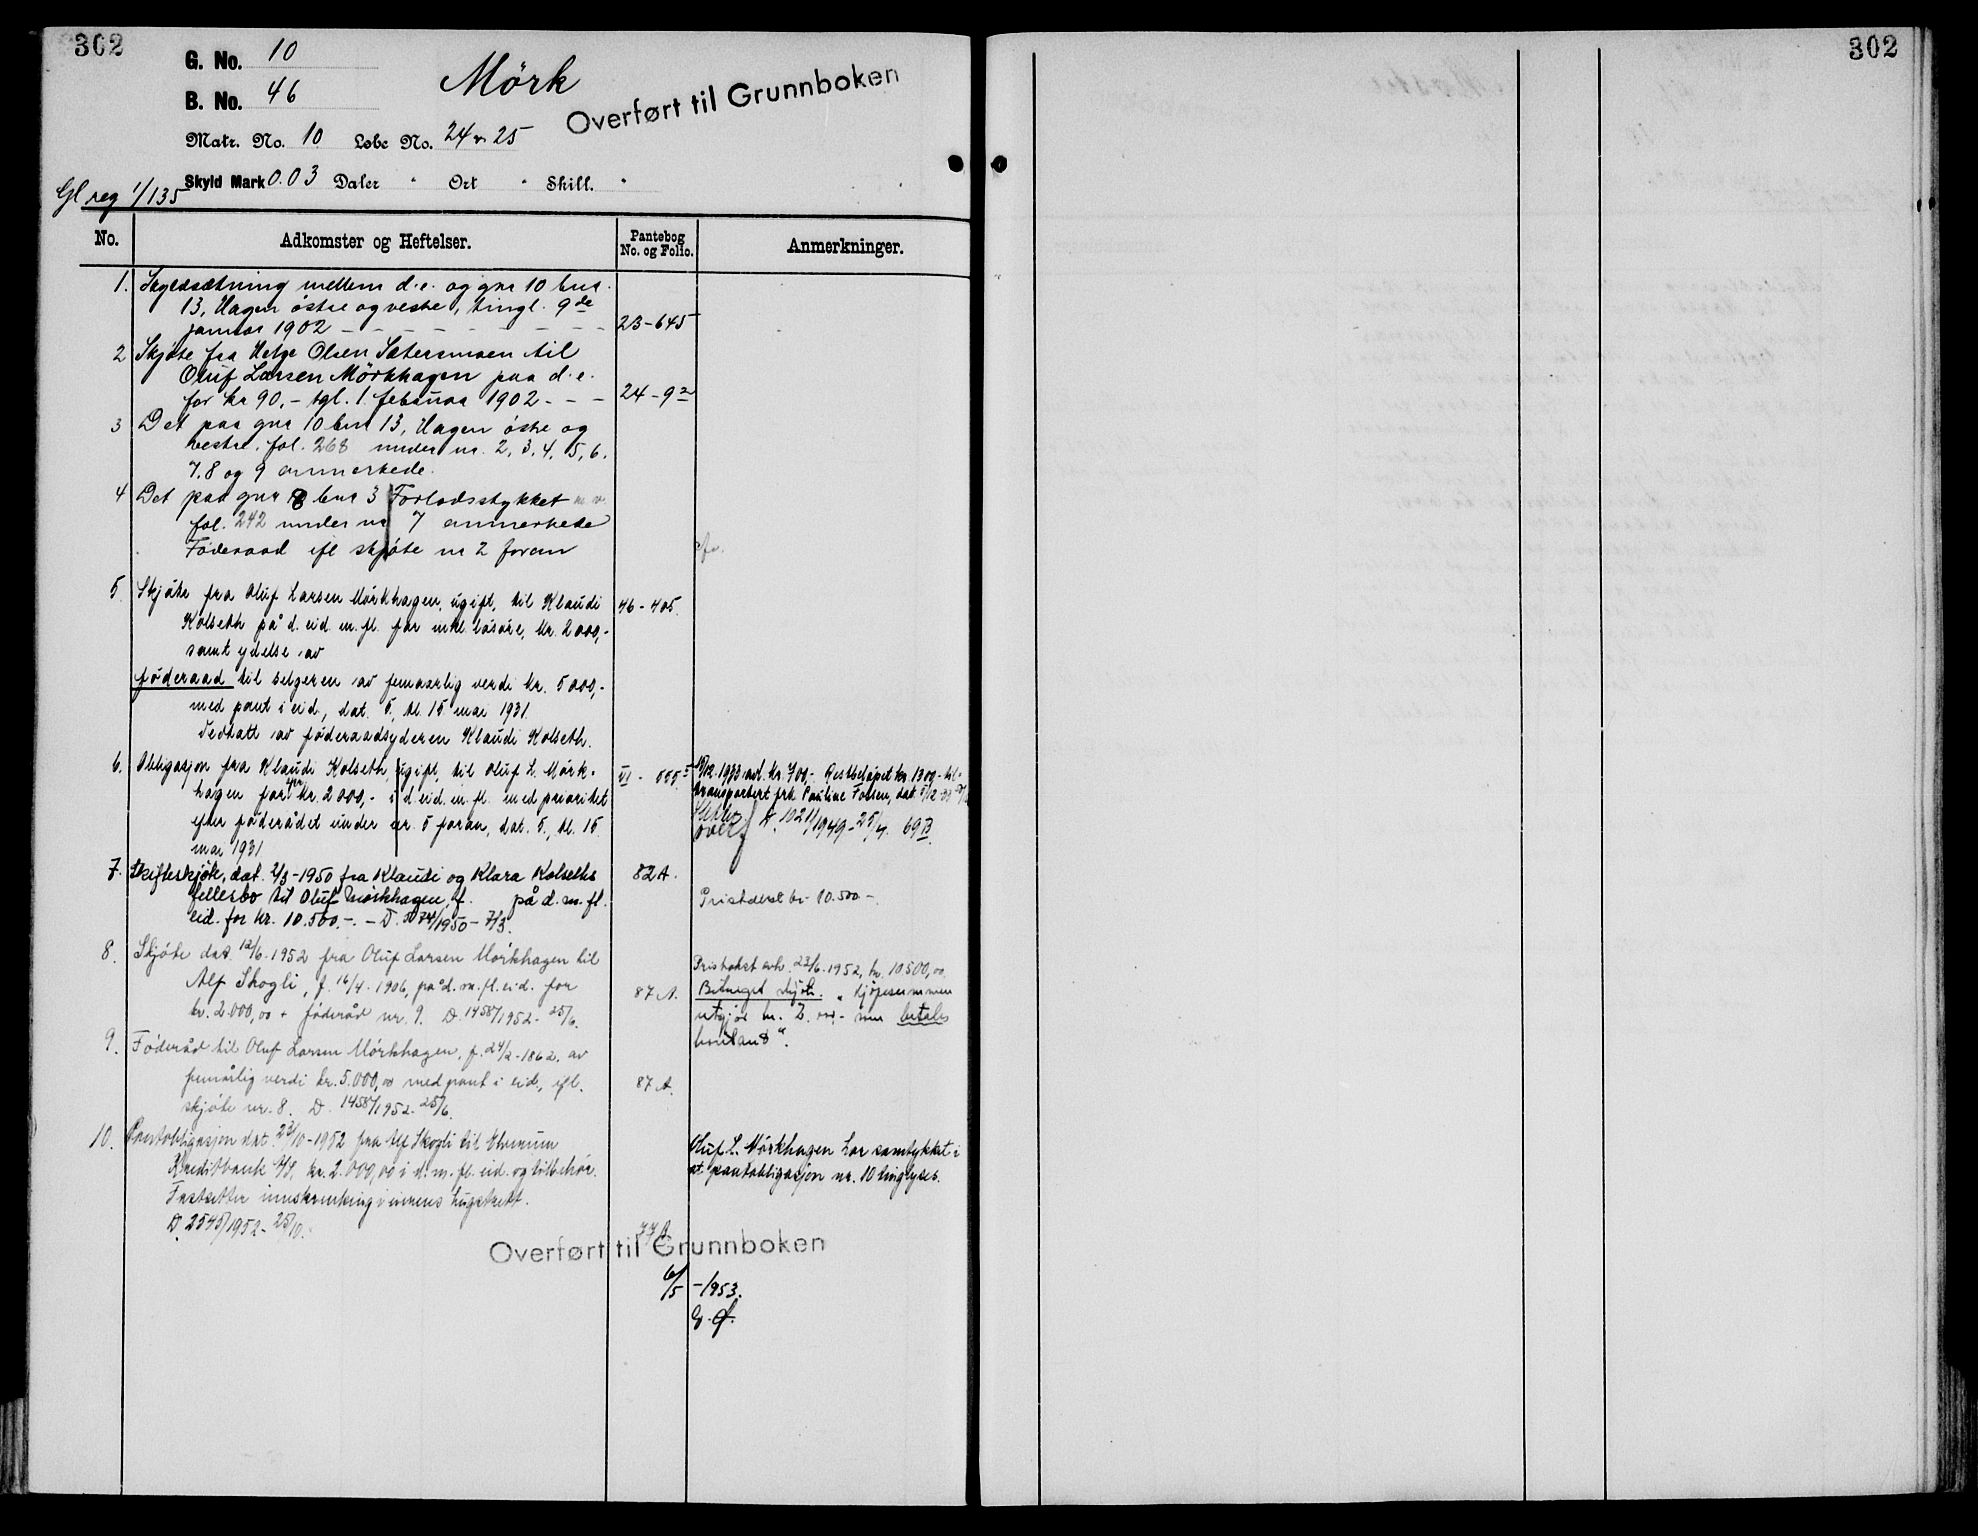 302
G. No. 10
Mörk
B. No. 46
Overført til Grunnboken
Matr. No. 10 Løbe No. 24 25
Skyld Mark 0.03 Daler " Ort " Skill. "
Gl reg 1/135
No. Adkomster og Heftelser. Pantebog No. og Folio. Anmerkninger.
1. Skyldsætning mellem d.e. og gnr 10 bnr.
13, Hagen östre og vestre, tingl. 9de
januar 1902 - - - - - - - - 23-645
2 Skjöte fra Helge Olsen Sætersmoen til
Oluf Larsen Mörkhagen paa d.e.
for kr 90,- tgl. 1. februar 1902 - - - 24-92
3 Det paa gnr 10 bnr 13, Hagen östre og
vestre, fol. 268 under nr. 2, 3, 4, 5, 6,
7, 8 og 9 anmerkede.
4 Det paa gnr 8 bnr 3 Forlodsstykket m.v.
fol. 242 under nr 7 anmerkede
Föderaad ifl skjöte nr 2 foran
5. Skjöte fra Oluf Larsen Mörkhagen, ugift, til Klaudi 46-405.
Kolseth på d. eid. m. fl. for inkl. lösöre, kr. 2000,-
samt ydelse av
föderaad til selgeren av femaarlig verdi kr. 5000,-
med pant i eid., dat. 5., tl. 15 mai 1931.
Vedtatt av föderaadsyderen Klaudi Kolseth.
6. Obligasjon fra Klaudi Kolseth, ugift, til Oluf L. Mörk-
hagen for kr. 2000,- i d. eid. m. fl. med prioritet
efter föderådet under nr. 5 foran, dat. 5., tl. 15.
mai 1931
1933 avl. kr. 700,- Restbelöpet kr. 1300,- til-
transportert frk Pauline Fossen, dat.
Slettet
over D. 1021/1949-25/4. 69 B.
7. Skifteskjöte, dat. 2/3-1950 fra Klaudi og Klara Kolseths 82 A.
fellesbo til Oluf Mörkhagen, f. på d. m. fl.
eid. for kr. 10.500.-. - D. 574/1950-7/3.
Pristakst kr 10.500-.
8. Skjöte dat. 12/6-1952 fra Oluf Larsen Mörkhagen til
Alf Skogli, f. 16/4-1906, på d. m. fl. eid. for
kr. 2.000,00 + föderåd nr. 9. D. 1458/1952-25/6. 87 A.
Pristakst avh. 23/6-1952, kr. 10500,00
Betinget skjöte. "Kjöpesummen
utgjör kr. 2.000,- som betales
kontant".
9. Föderåd til Oluf Larsen Mörkhagen, f. 24/2-1862, av
femårlig verdi kr. 5.000,00 med pant i eid., ifl. 87 A.
skjöte nr. 8. D. 1458/1952-25/6.
10. Pantobligasjon dat. 23/10-1952 fra Alf Skogli til Elverum
Kreditbank A/S, kr. 2.000,00 i d. m. fl. eid. og tilbehör.
Fastsetter innskrenking i eierens hugstrett.
D. 2545/1952-25/10.
Oluf L. Mörkhagen har samtykket i
at pantobligasjon nr. 10 tinglyses.
77 A
Overført til Grunnboken
6/5-1953.
302